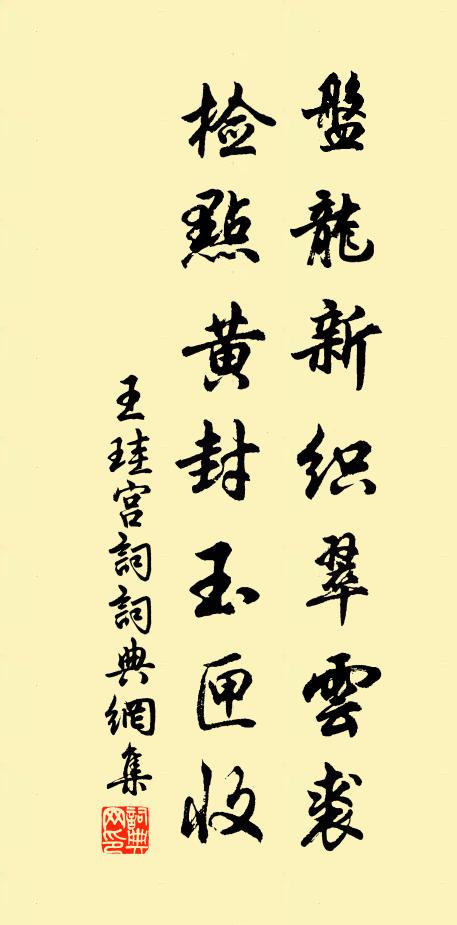 盤龍新织翠雲裘
檢點黄封玉匣收
王珪宫詞詞典網集
詞典網印